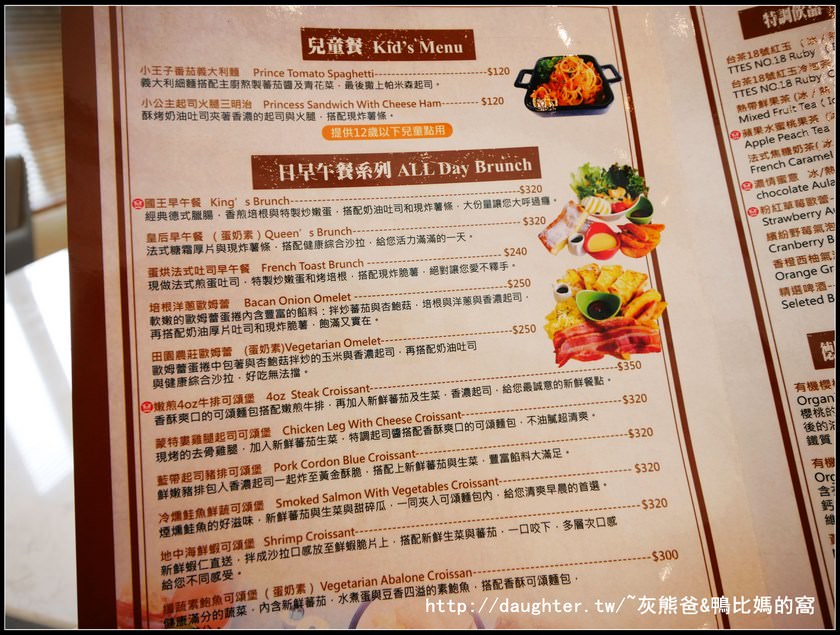 兒童餐 Kid's Menu
小王子番茄義大利麵 Prince Tomato Spaghetti $120
義大利細麵搭配主廚熬製蕃茄醬及青花菜，最後撒上帕米森起司。
小公主起司火腿三明治 Princess Sandwich With Cheese Ham $120
酥烤奶油吐司夾著香濃的起司與火腿，搭配現炸薯條。
提供12歲以下兒童點用
日早午餐系列 ALL Day Brunch
國王早午餐 King's Brunch $320
經典德式臘腸，香煎培根與特製炒嫩蛋，搭配奶油吐司和現炸薯條，大份量讓您大呼過癮。
皇后早午餐（蛋奶素）Queen's Brunch $320
法式糖霜厚片與現炸薯條，搭配健康綜合沙拉，給您活力滿滿的一天。
蛋烘法式吐司早午餐 French Toast Brunch $240
現做法式煎蛋吐司，特製炒嫩蛋和烤培根，搭配現炸脆薯，絕對讓您愛不釋手。
培根洋蔥歐姆蕾 Bacan Onion Omelet $250
軟嫩的歐姆蕾蛋捲內含豐富的餡料：拌炒蕃茄與杏鮑菇，培根與洋蔥與香濃起司，
再搭配奶油厚片吐司和現炸脆薯，飽滿又實在。
田園農莊歐姆蕾 (蛋奶素)Vegetarian Omelet $250
歐姆蕾蛋捲中包著與杏鮑菇拌炒的玉米與香濃起司，再搭配奶油吐司
與健康綜合沙拉，好吃無法擋。
嫩煎4oz牛排可頌堡 4oz Steak Croissant $350
香酥爽口的可頌麵包搭配嫩煎牛排，再加入新鮮蕃茄及生菜，香濃起司，給您最誠意的新鮮餐點。
蒙特婁雞腿起司可頌堡 Chicken Leg With Cheese Croissant $320
現烤的去骨雞腿，加入新鮮蕃茄生菜，特調起司醬搭配香酥爽口的可頌麵包，不油膩超清爽。
藍帶起司豬排可頌堡 Pork Cordon Blue Croissant $320
鮮嫩豬排包入香濃起司一起炸至黃金酥脆，搭配上新鮮蕃茄與生菜，豐富餡料大滿足。
冷燻鮭魚鮮蔬可頌堡 Smoked Salmon With Vegetables Croissant $320
煙燻鮭魚的好滋味，新鮮蕃茄與生菜與甜碎瓜，一同夾入可頌麵包內，給您清爽早晨的首選。
地中海鮮蝦可頌堡 Shrimp Croissant $320
新鮮蝦仁直送，拌成沙拉口感放至鮮蝦脆片上，搭配新鮮生菜與蕃茄，一口咬下，多層次口感
給您不同感受。
蔬素鮑魚可頌堡（蛋奶素）Vegetarian Abalone Croissan $300
健康滿分的蔬菜，內含新鮮蕃茄，水煮蛋與豆香四溢的素鮑魚，搭配香酥可頌麵包，
特調飲品
台茶18號紅玉（冰
TTES NO.18 Ruby
台茶18號紅玉冷泡茶
TTES NO.18 Ruby
熱帶鮮果茶（冰 / 熱
Mixed Fruit Tea
蘋果水蜜桃果茶
Apple Peach Tea
法式焦糖奶茶（冰
French Caramel
濃情蜜意 冰/熱
chocolate Aula
粉紅草莓歐蕾
Strawberry A
繽紛野莓氣泡
Cranberry B
香橙西柚氣
Orange G
精選啤酒
Seleted B
有機櫻
Organ
櫻桃的
後的沼
鐵質
有機
Organ
含
鈣
http://daughter.tw/~灰熊爸&鴨比媽的窩